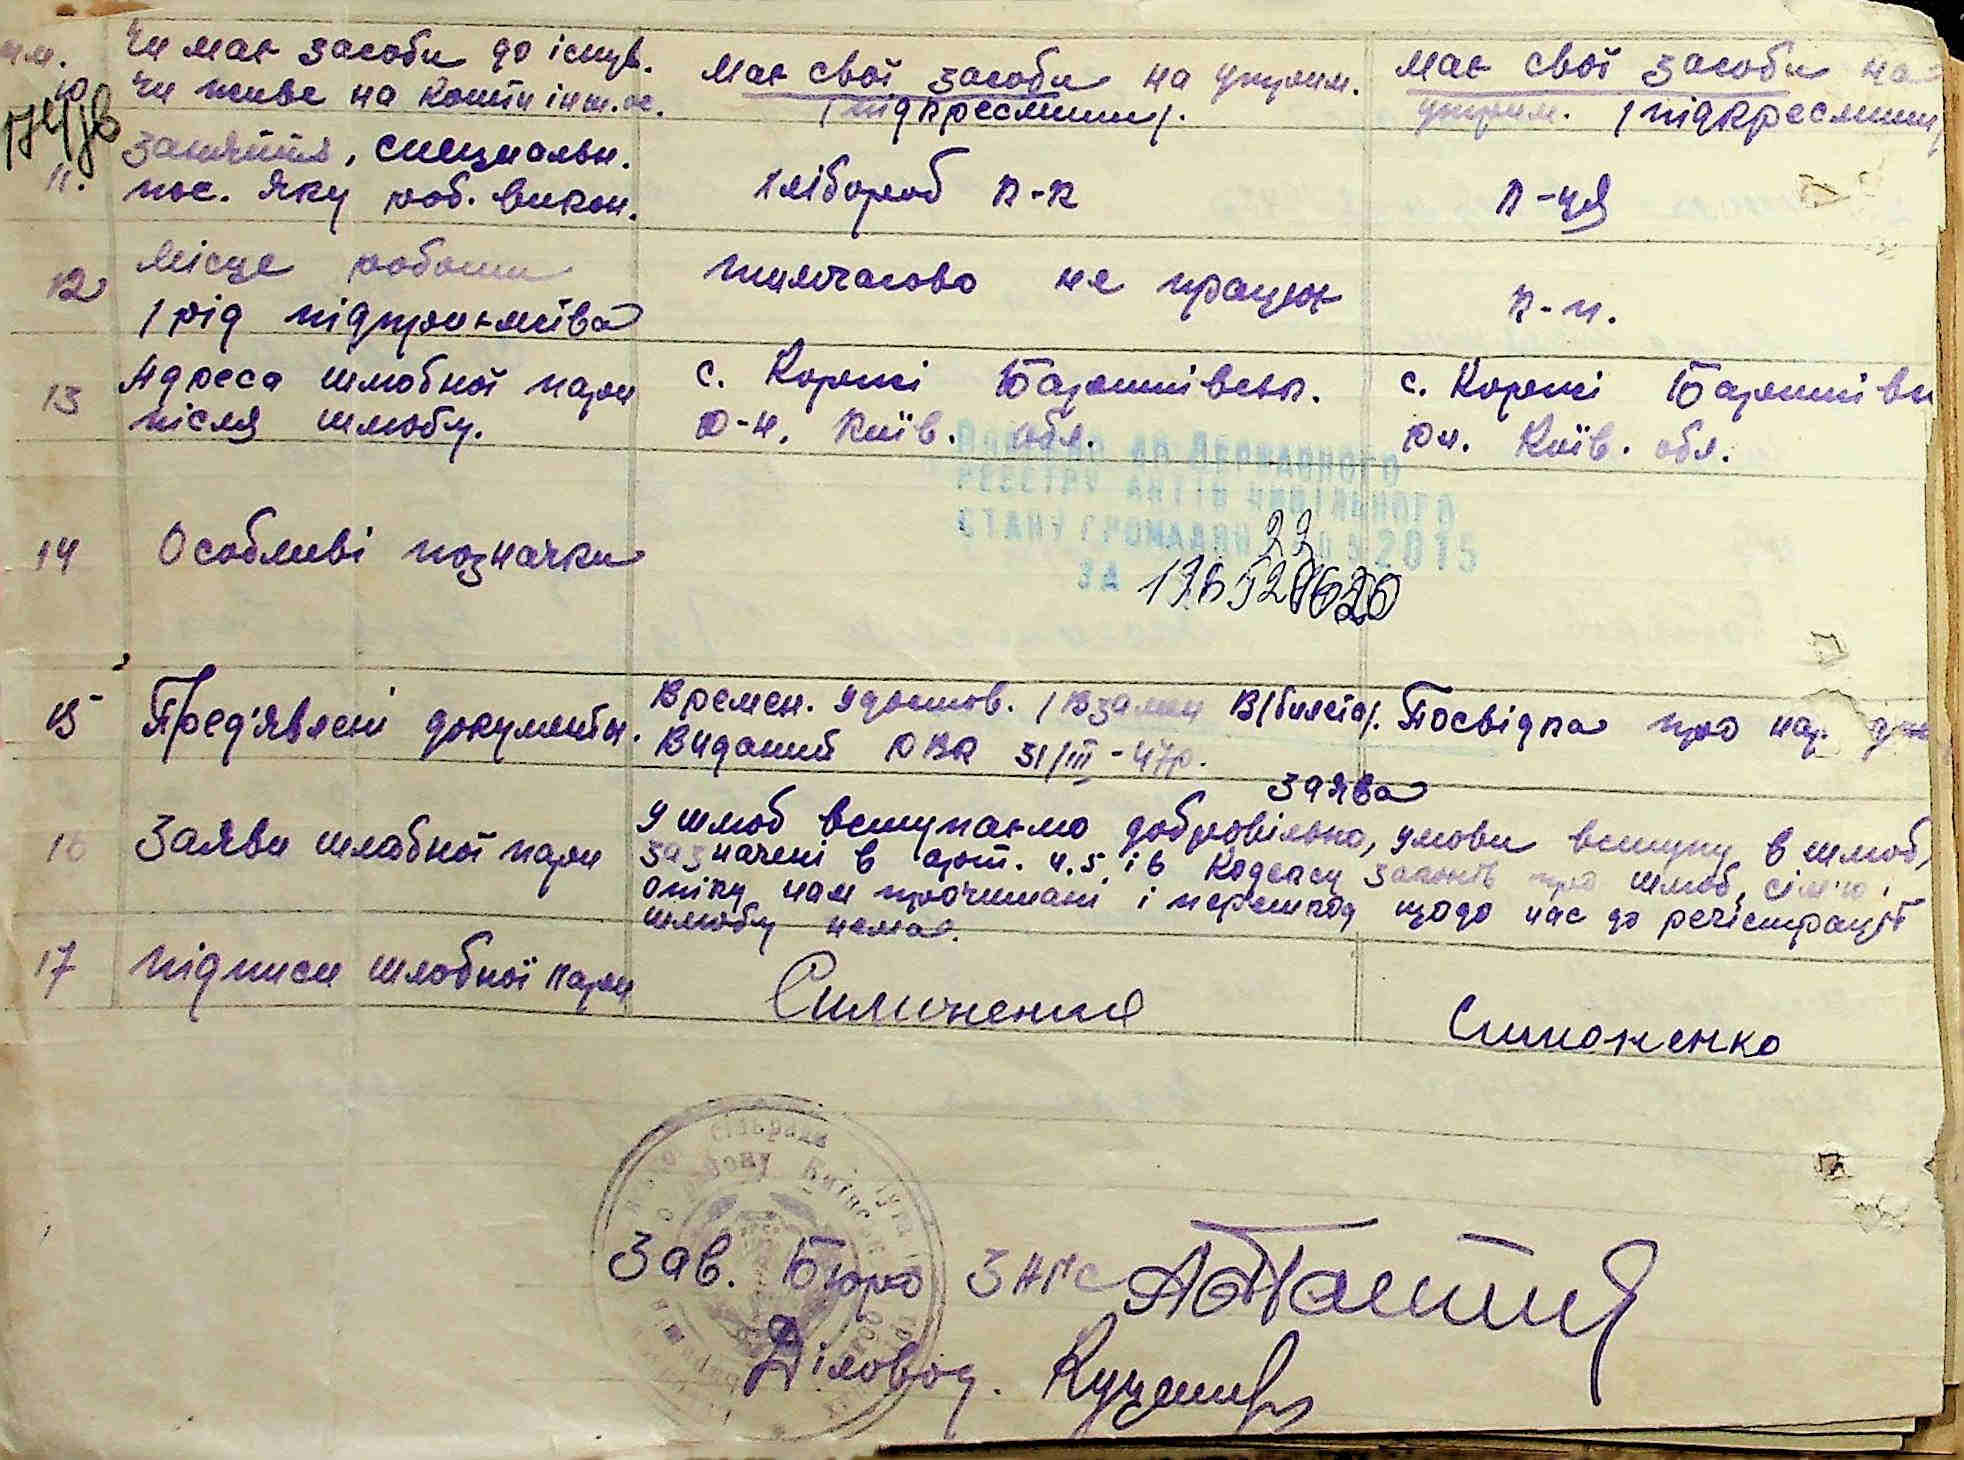 Чи має засоби до існув. має свої засоби на утрим. має свої засоби на
10 Чи живе на кошти інш. ос. /підкреслити/. утрим. /підкреслити/
заняття, специальн.
11. пос. яку роб. викон. хлібороб к-к к-ця
12 Місце роботи тимчасово не працює к-п.
/рід підприємства
13 Адреса шлюбної пари с. Коржі Баришівськ. с. Коржі Баришівськ
після шлюбу. р-н. Київ. обл. рн. Київ. обл.
Внесено до Державного
реєстру актів цивільного
стану громадян 2015
14 Особливі позначки
за 22
15 Пред'явлені документи. Времен. удостов. /взамен В/билета/. Посвідка про нар.
Виданий РВК 31/III-47р.
заява
16 Заяви шлюбної пари У шлюб вступаємо добровільно, умови вступу в шлюб,
зазначені в арт. 4.5. і 6 Кодексу законів про шлюб, сім'ю і
опіку, нам прочитані і перешкод щодо нас до реєстрації
шлюбу немає.
17 підписи шлюбної пари Симоненко Симоненко
Зав. Бюро ЗАГС
Діловод.